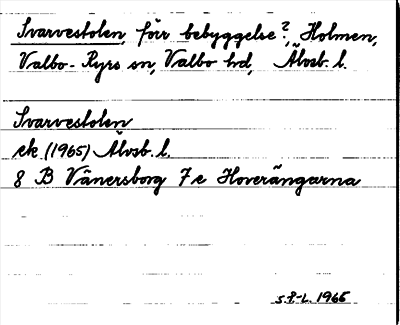 Svarvestolen, förr bebyggelse?, Holmen,
Valbo-Ryrs sn, Valbo hd, Älvsb. l.
Svarvestolen
ek. (1965) Älvsb. l.
8 B Vänersborg 7 e Hoverängarna
1965